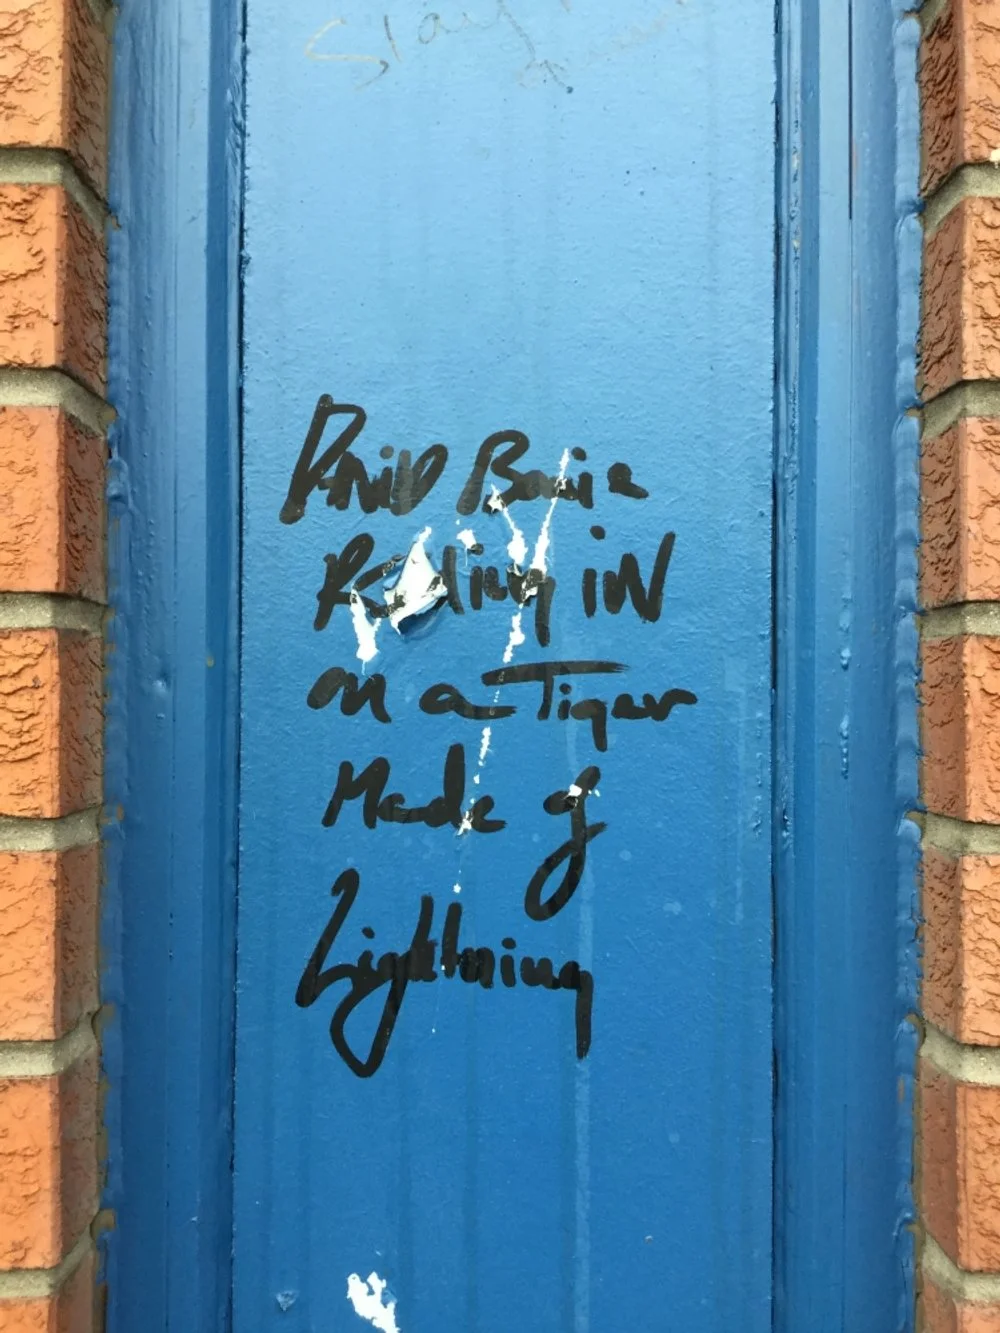 Slay
DaviD Bowie
Rolling iN
on a Tiger
Made of
Lightning